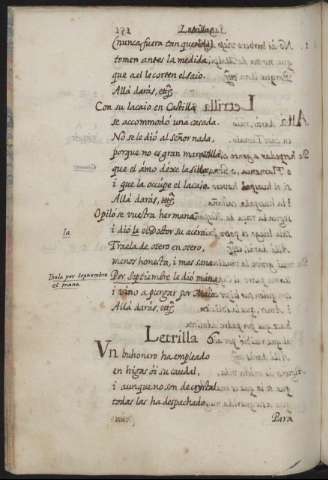 191 Letrillas
(nunca fuera tan querida)
tomen antes la medida,
que a el le corten el saio.
Alla darás, etc.
Con su lacaio en Castilla
se accommodó una casada.
No se le dió al Señor nada,
porque no es gran marauilla
que el amo dexe la silla,
i que la occupe el lacaio.
Alla darás, etc.
Opilose vuestra hermana
i dió la el Doctor su acero.
la
Traela de otero en otero,
menos honesta, i mas sana.
Por Septiembre le dió mana
i vino a purgar por Maio.
Alla darás, etc.
Letrilla 6
Vn buhonero ha empleado
en higas oi su caudal,
i aunque no son de crystal,
todas las ha despachado.
Para